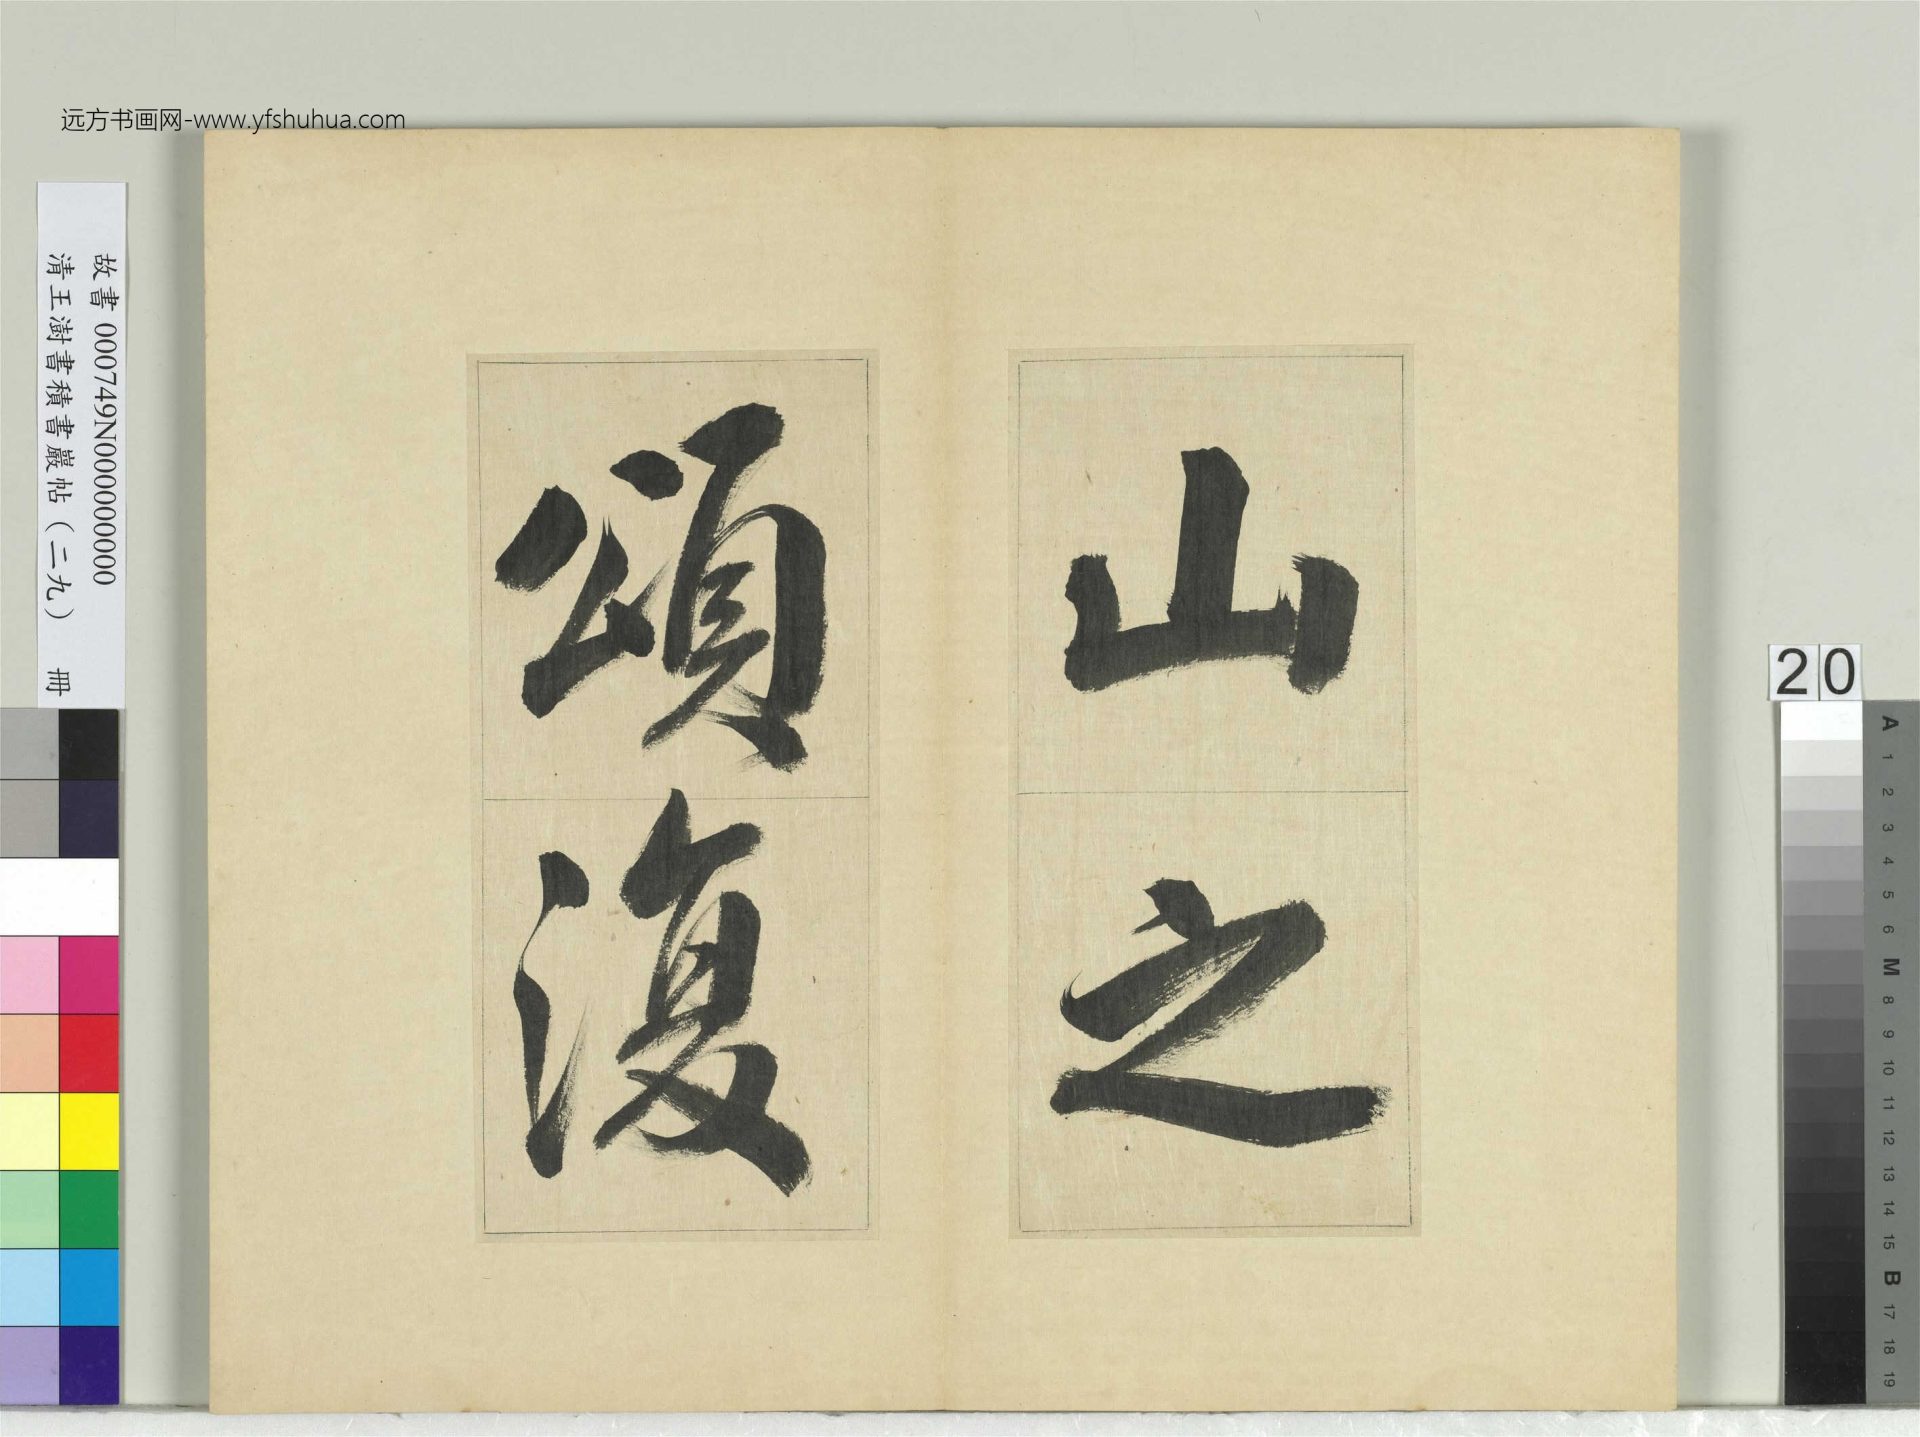 远方书画网-www.yfshuhua.com
故書 000749N000000000
清王澍書積書巖帖（二九） 冊
山之
頌復
20
A
1
2
3
4
5
6
M
8
9
10
11
12
13
14
15
B
17
18
19